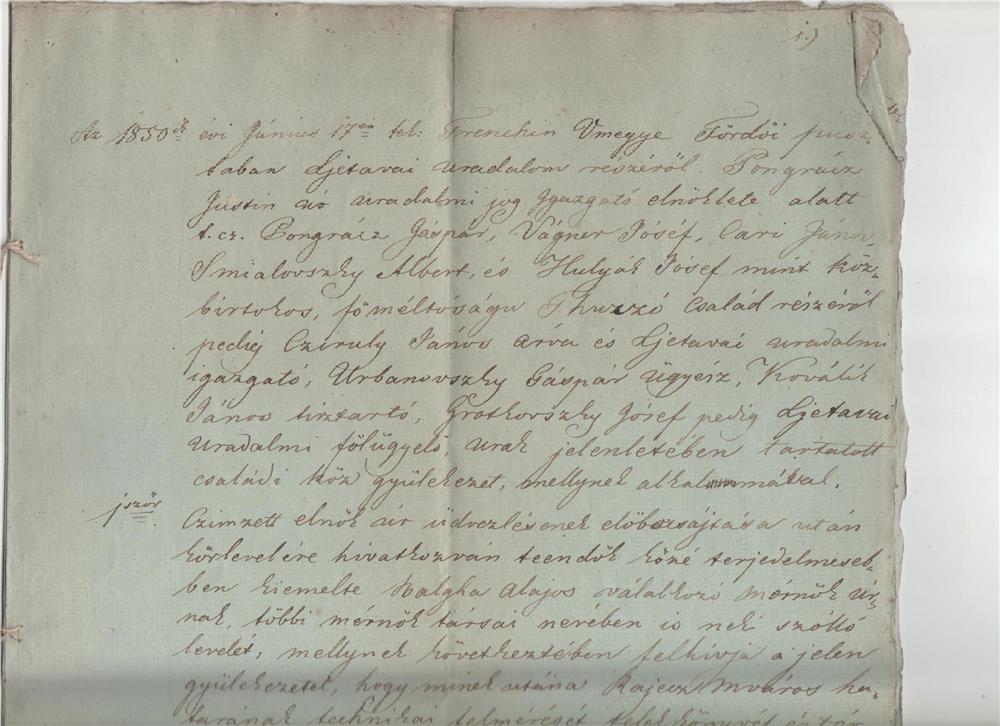 1.)
Az 1850ik évi Június 17én tek: Trenchin Vmegye Fördöi pusz-
taban Ljetavai uradalom részéröl. Pongrácz
Justin úr uradalmi jog Igazgató elnöklete alatt
t. cz. Pongrácz Gáspár, Vágner Jósef, Cari János,
Smialovszky Albert, és Hulyák Jósef mint köz-
birtokos, föméltóságu Thurzó család részéröl
pedig Cziruly János Árva és Ljetavai uradalmi
igazgató, Urbanovszky Gáspár Ügyész, Koválik
János tisztartó, Grotkovszky Jósef pedig Ljetavai
uradalmi fölügyelö, urak jelenletében tartatott
családi köz gyülekezet, mellynek alkalmával.
1ször Czimzett elnök úr üdvezlésenek elöbocsájtása után
körlevelére hivatkozván teendök közé terjedelmeseb-
ben kiemelte Balgha Alajos válalkozó mérnök úr-
nak, többi mérnök társai nevében is neki szólló
levelét, mellynek következtében felhivja a jelen
gyülekezetet, hogy minek utána Rajecz mváros ha-
tarának technikai felmérését telekkönyvét